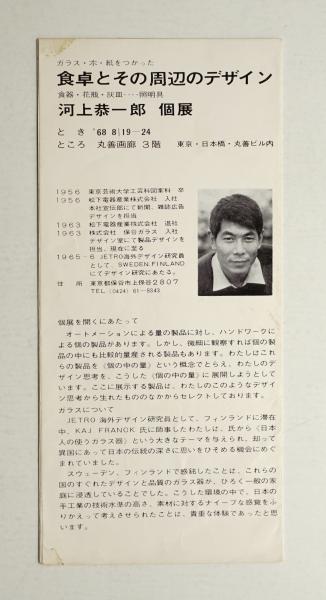 ガラス・木・紙をつかった
食卓とその周辺のデザイン
食器・花瓶・灰皿‥‥照明具
河上恭一郎 個展
とき '68 8|19—24
ところ 丸善画廊 3階 東京・日本橋・丸善ビル内
1956 東京芸術大学工芸科図案科 卒
1956 松下電器産業株式会社 入社
本社宣伝部にて新聞、雑誌広告
デザインを担当
1963 松下電器産業株式会社 退社
1963 株式会社 保谷ガラス 入社
デザイン室にて製品デザインを
担当、現在に至る
1965-6 JETRO海外デザイン研究員
として、SWEDEN.FINLAND
にてデザイン研究にあたる。
住所 東京都保谷市上保谷2807
TEL(0424)61-8343
個展を開くにあたって
オートメーションによる量の製品に対し、ハンドワークに
よる個の製品があります。しかし、微細に観察すれば個の製
品の中にも比較的量産される製品もあります。わたしはこれ
らの製品を《個の中の量》という概念でとらえ、わたしのデ
ザイン思考を、こうした《個の中の量》に展開しようとして
います。ここに展示する製品は、わたしのこのようなデザイ
ン思考から生れたもののなかからセレクトしております。
ガラスについて
JETRO海外デザイン研究員として、フィンランドに滞在
中、KAJ FRANCK 氏に師事したわたしは、氏から《日本
人の使うガラス器》という大きなテーマを与えられ、却って
異国にあって日本の伝統の深さに思いをひそめる機会にめぐ
まれていました。
スウェーデン、フィンランドで感銘したことは、これらの
国のすぐれたデザインと品質のガラス器が、ひろく一般の家
庭に浸透していることでした。こうした環境の中で、日本の
手工業の技術水準の高さ、素材に対するナイーブな感覚をふ
りかえって考えさせられたことは、貴重な体験であったと思
います。